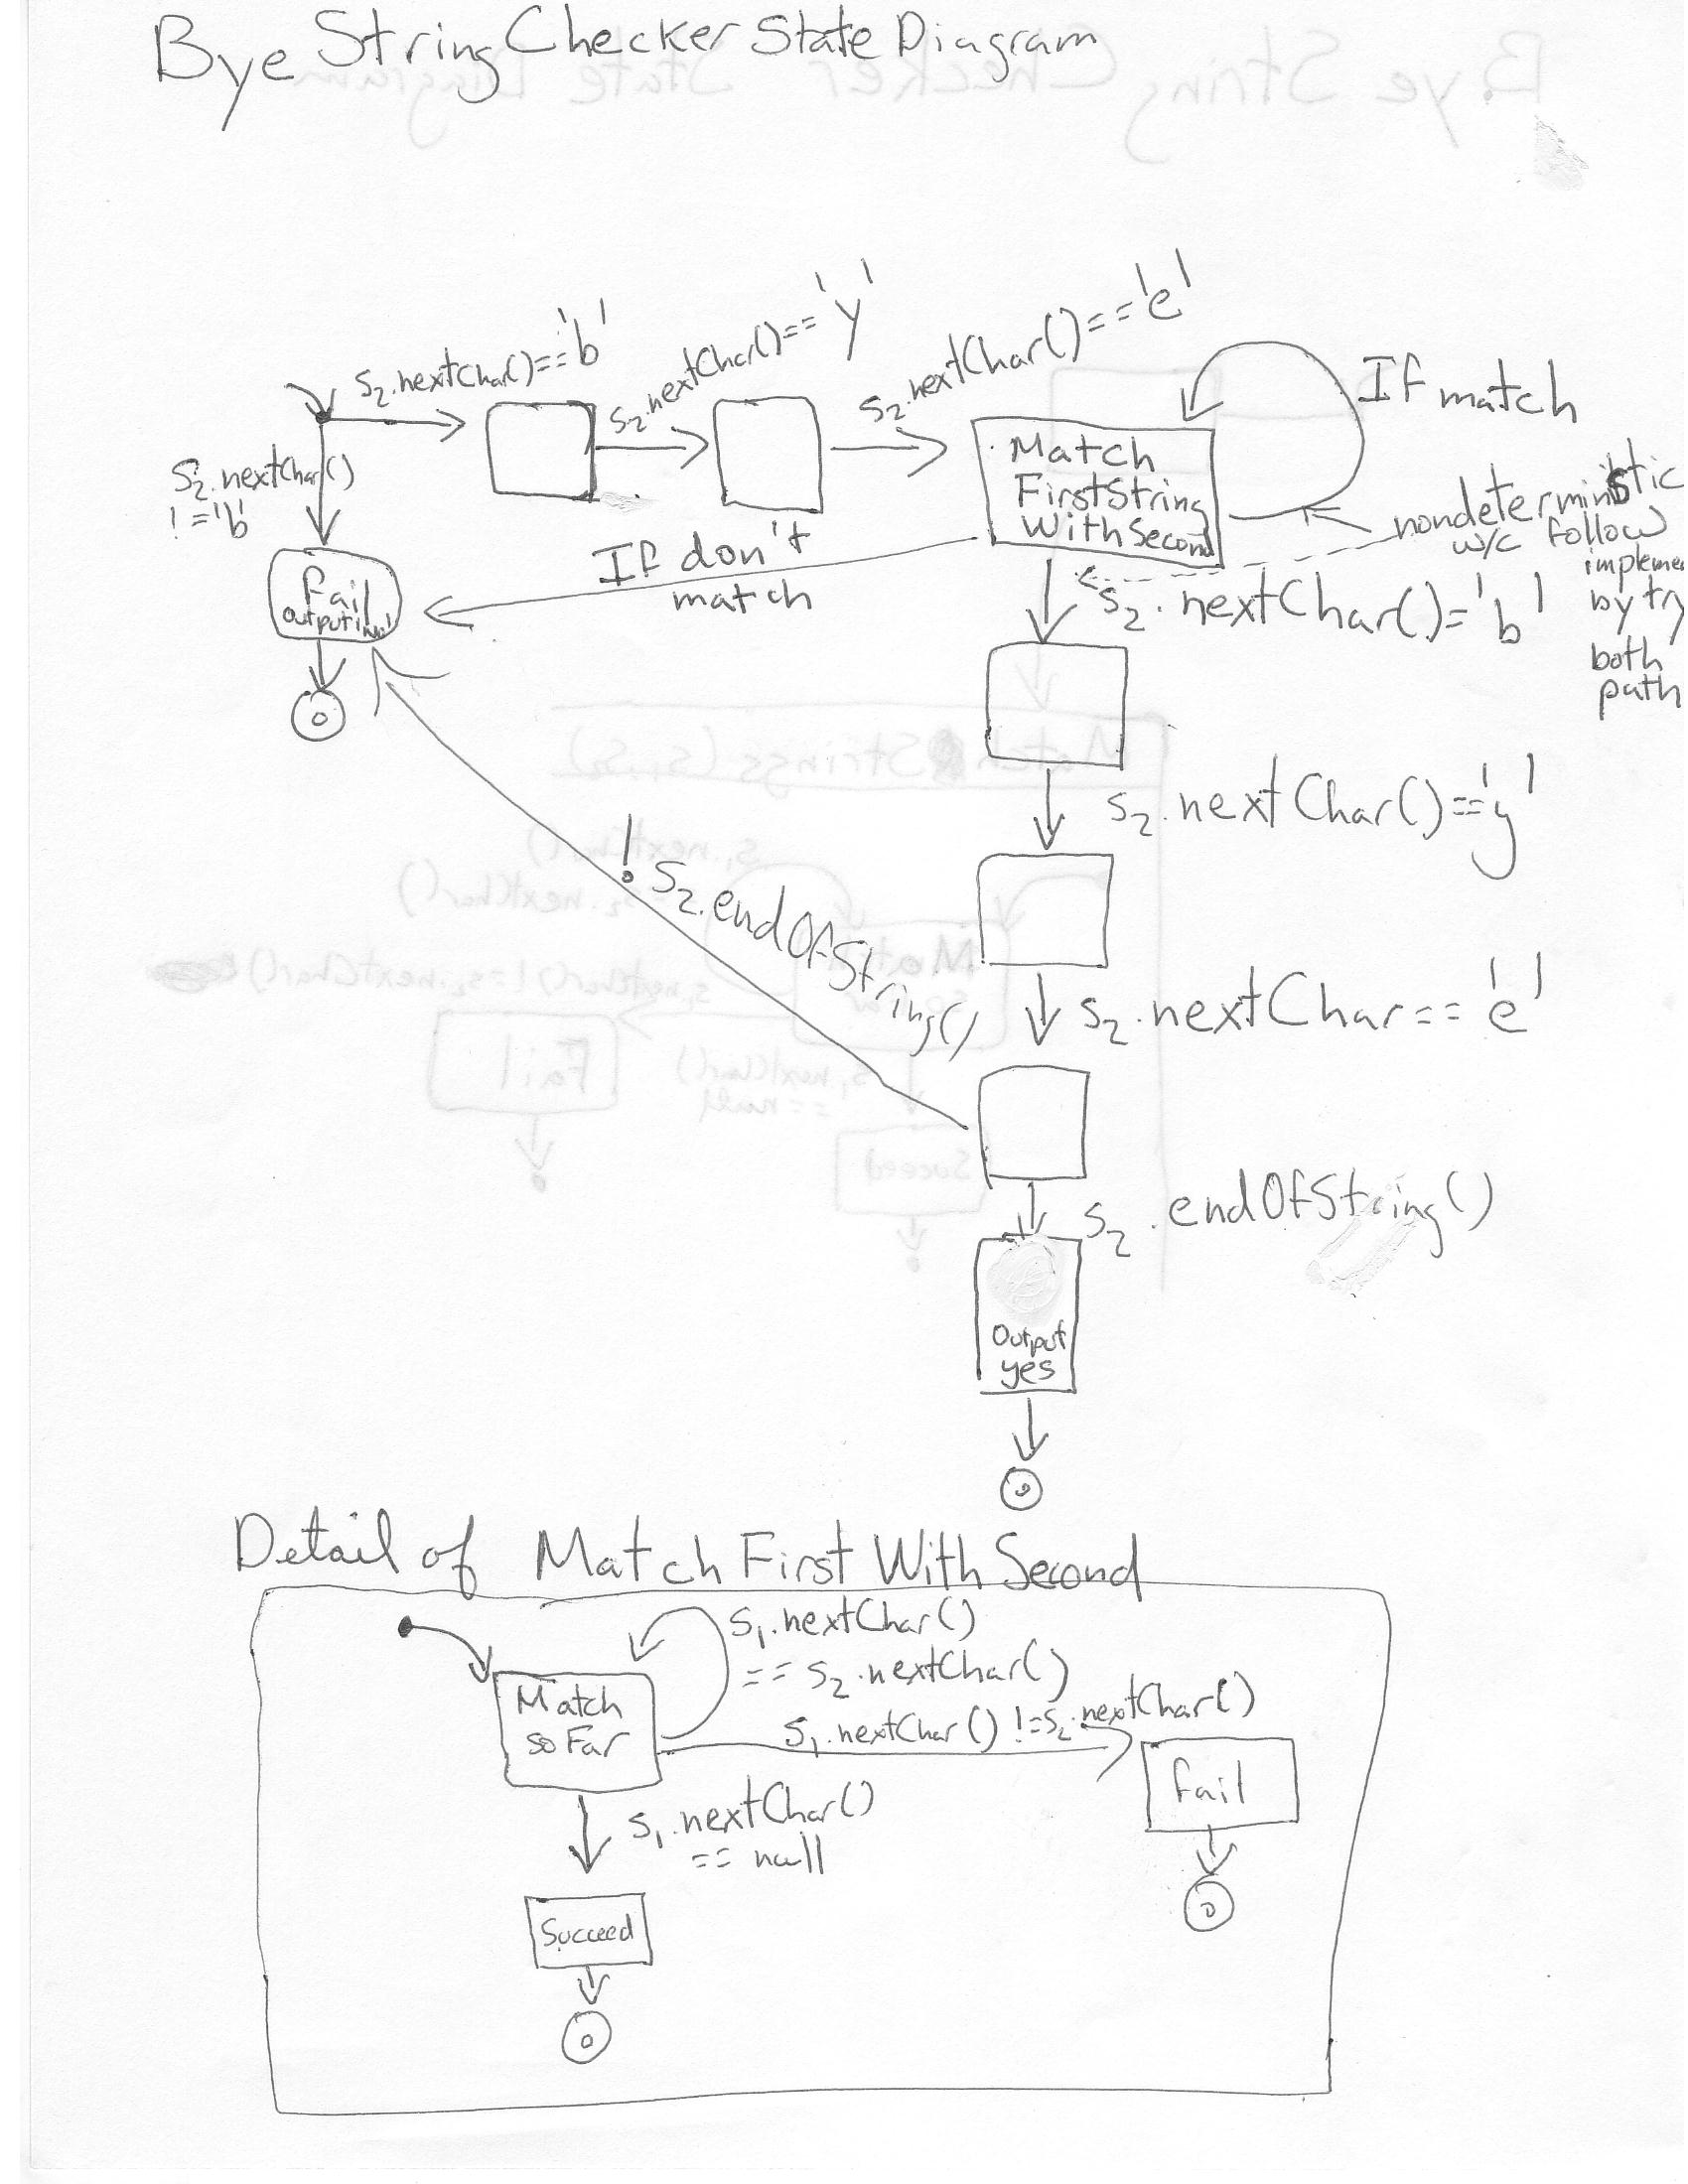 Bye String Checker State Diagram
s2.nextChar()=='b'
s2.nextChar()=='y'
s2.nextChar()=='e'
If match
s2.nextChar()
!='b'
Match
First String
With Second
nondeterministic
w/c follow
by try
both
path
If don't
match
fail
output
s2.nextChar()='b'
s2.nextChar()=='y'
!s2.endOfString()
s2.nextChar=='e'
s2.endOfString()
Output
yes
Detail of Match First With Second
s1.nextChar()
==s2.nextChar()
Match
so Far
s1.nextChar() !=s2.nextChar()
fail
s1.nextChar()
== null
Succeed